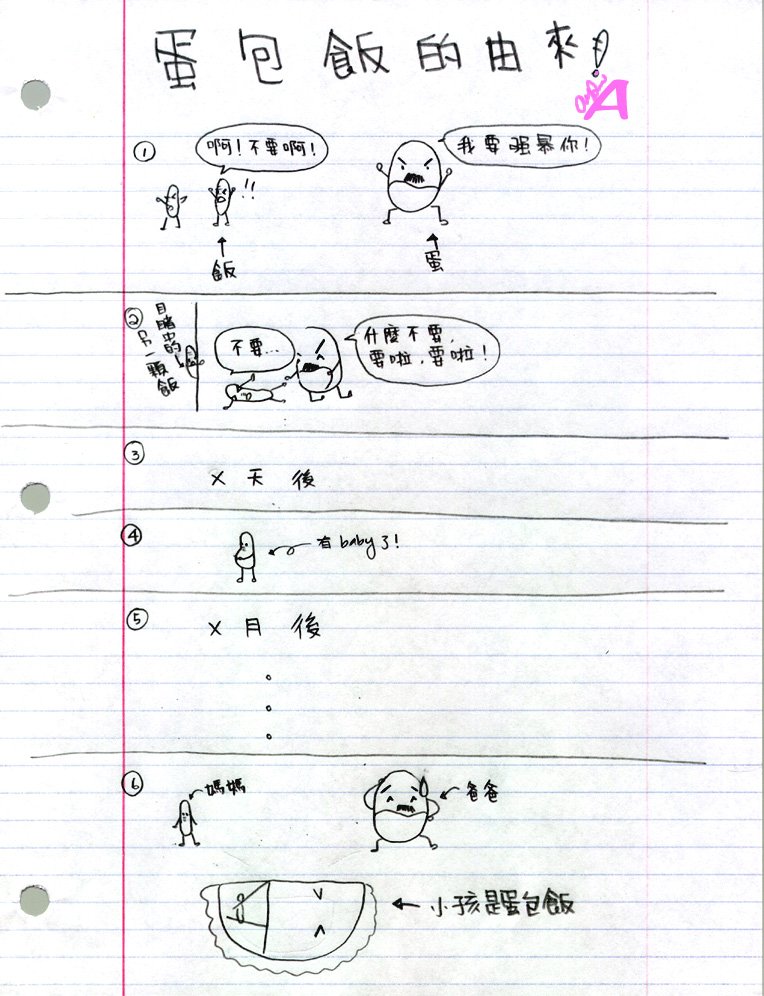 蛋包飯的由來!
①
啊!不要啊!
我要强暴你!
!!
飯
蛋
②
目睹中的
另一顆飯
不要...
什麼不要,
要啦,要啦!
③
X天後
④
有baby了!
⑤
X月後
⑥
媽媽
爸爸
小孩是蛋包飯